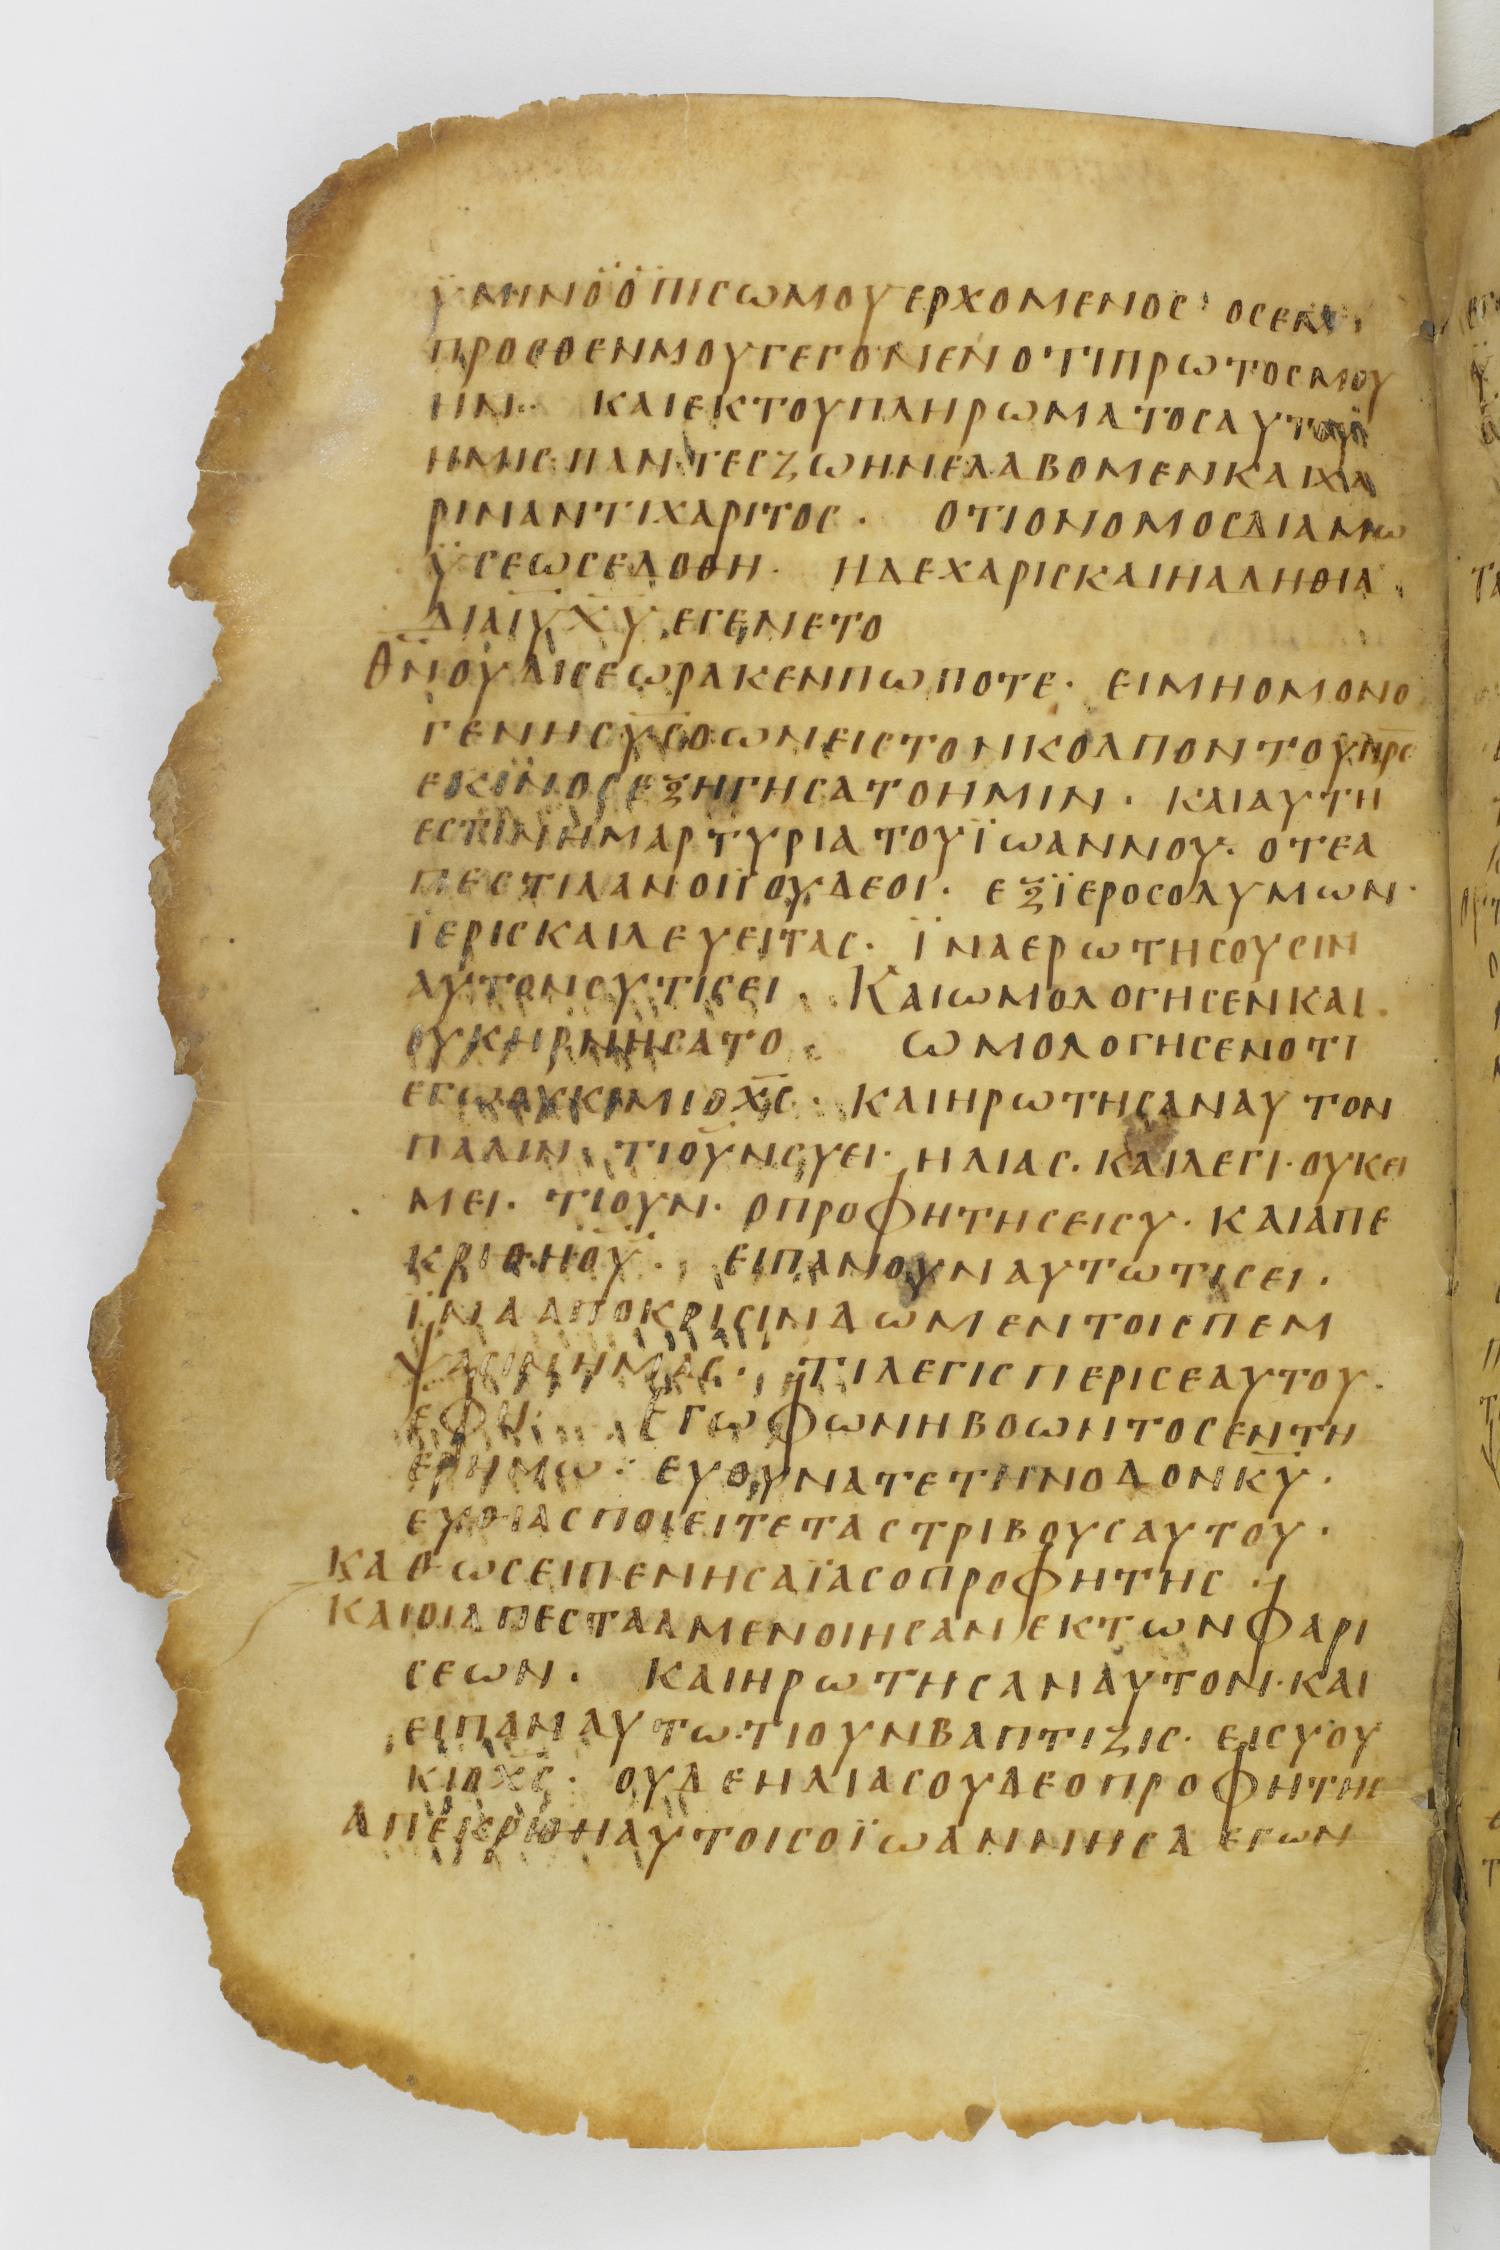 ϋμηνὁ ὁπισωμουερχομενος· οσεμ
προσθενμουγεγονενοτιπρωτοσμου
ην· καιεκτουπληρωματοσαυτου
ημισ παντεσζωηνελαβομενκαιχα
ριναντιχαριτος· οτιονομοσδιαμω
ϋσεωσεδοθη· ηδεχαρισκαιηαληθια
διαιυ̅χυ̅εγενετο
θν̅ουδισεωρακενπωποτε· ειμηομονο
γενησυσ̅οωνειστονκολπον του πρσ̅
εκϊνοσεξηγησατοημιν· καιαυτη
εστινημαρτυριατουϊωαννου· οτεα
πεστιλανοιϊουδεοι· εξϊεροσολυμων·
ϊερισκαιλευειτας· ϊναερωτησουσιν
αυτονσυτισει· Καιωμολογησενκαι
ουκηρνησατο· ωμολογησενοτι
εγωουκιμιοχσ̅· καιηρωτησαναυτον
παλιν· τιουνσυει· ηλιας· καιλεγι· ουκει
μει· τιουν· οπροφητησεισυ· καιαπε
κριθηου· ειπανουναυτωτισει·
ϊνααποκρισινδωμεντοισπεμ
ψασινημας· τιλεγισπερισεαυτου·
εφη· εγωφωνηβοωντοσεντη
ερημω· ευθυνατετηνοδονκυ̅·
ευθιασποιειτεταστριβουσαυτου·
καθωσειπενησαϊασοπροφητης·
καιοιαπεσταλμενοιησανεκτωνφαρι
σεων· καιηρωτησαναυτον· και
ειπαναυτω· τιουνβαπτιζις· εισυου
κιοχσ̅· ουδεηλιασουδεοπροφητης
απεκριθηαυτοισοϊωαννησλεγων